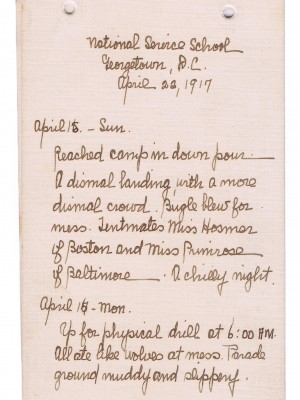 National Service School
Georgetown, D.C.
April 23, 1917
April 15. - Sun.
Reached camp in down pour.
A dismal landing, with a more
dismal crowd. Bugle blew for
mess. Tentmates Miss Hosmer
of Boston and Miss Primrose
of Baltimore. A chilly night.
April 16 - Mon.
Up for physical drill at 6:00 AM.
All ate like wolves at mess. Parade
ground muddy and slippery.